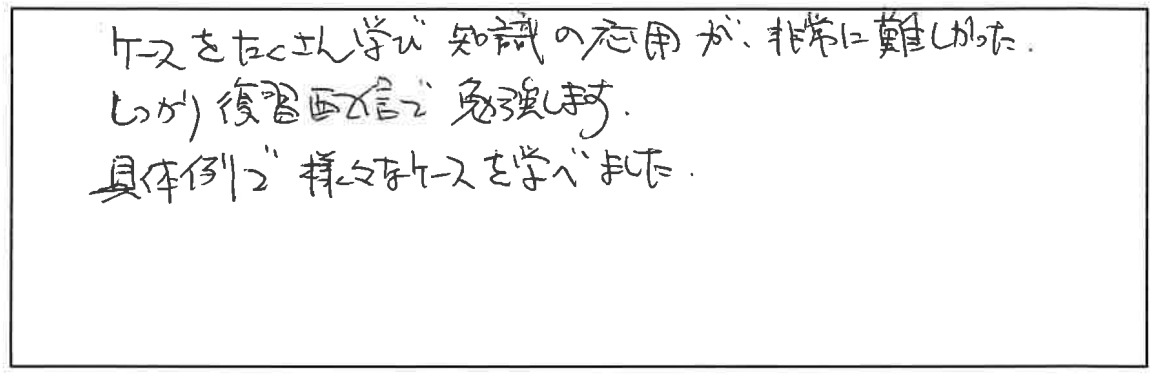 ケースをたくさん学び 知識の応用が、非常に難しかった.
しっかり復習配信で 勉強します.
具体例で 様々なケースを学べました.